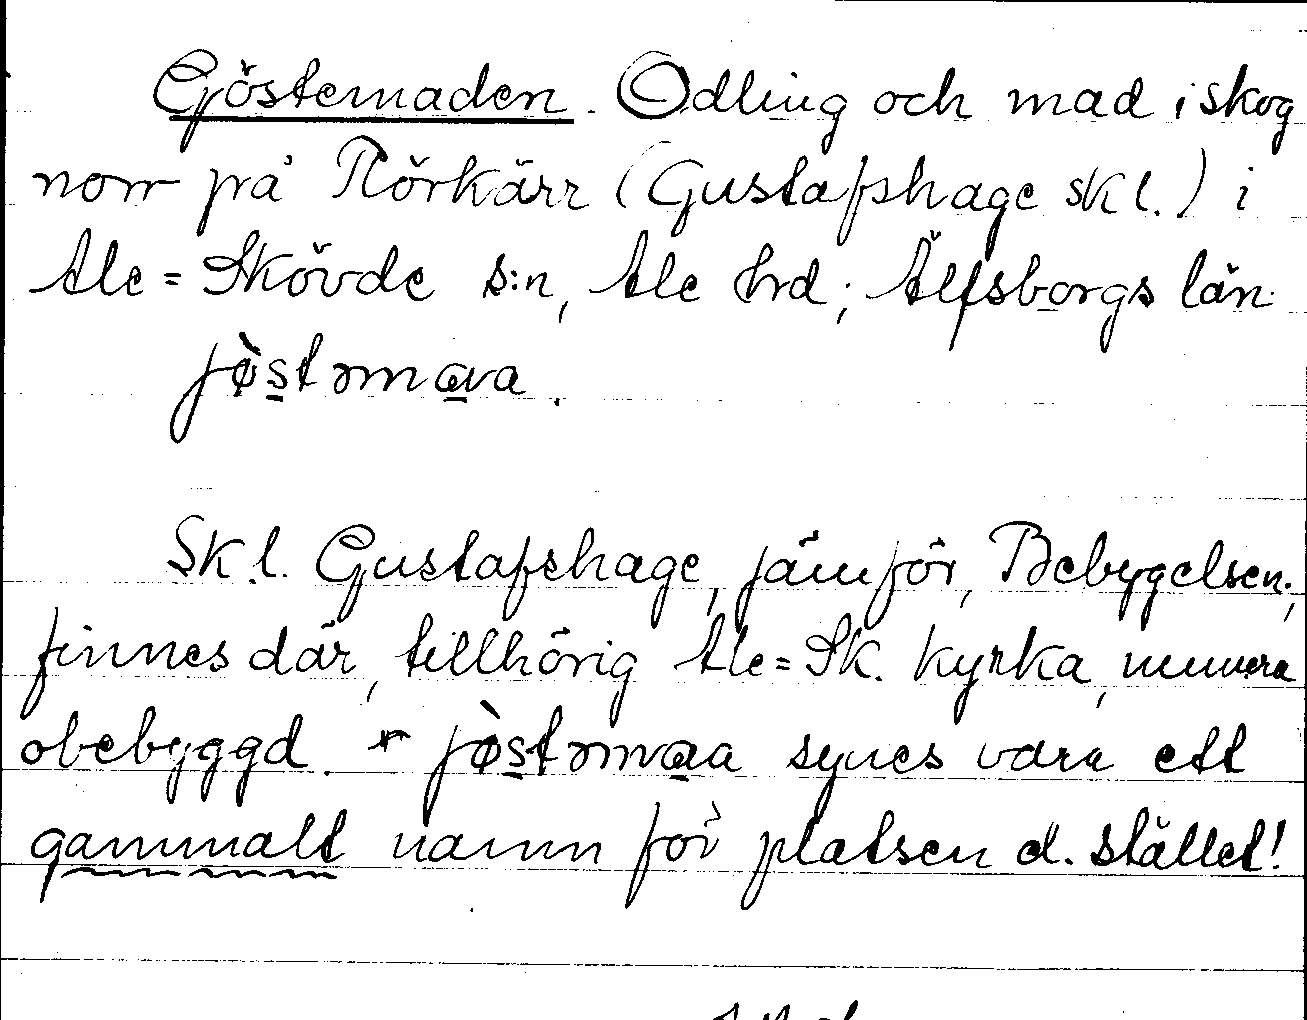 Göstemaden. Odling och mad i skog
norr på Rörkärr (Gustafshage skl.) i
Ale=Skövde s:n, Ale hrd; Älfsborgs län
jø̀stəmɑva.
Sk.l. Gustafshage, jämför, Bebygelsen;
finnes där, tillhörig Ale=Sk. kyrka, numera
obebyggd. * jø̀stəmɑa synes vara ett
gammalt namn för platsen d. stället!